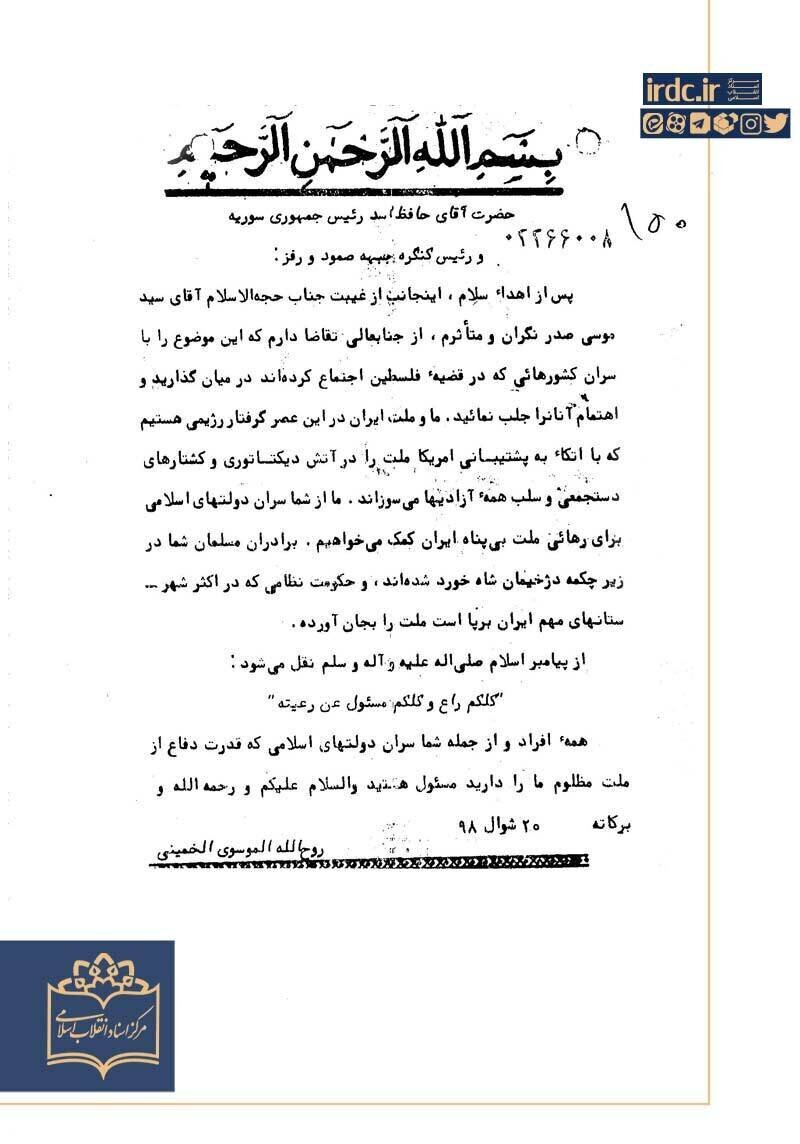 irdc.ir
مرکز اسناد انقلاب اسلامی
بسم الله الرحمن الرحیم
حضرت آقای حافظ اسد رئیس جمهوری سوریه
۱۵۰
۰۲۲۶۶۰۰۸
و رئیس کنگره جبهه صمود و رفز :
پس از اهداء سلام ، اینجانب از غیبت جناب حجهالاسلام آقای سید
موسی صدر نگران و متأثرم ، از جنابعالی تقاضا دارم که این موضوع را با
سران کشورهائی که در قضیهٔ فلسطین اجتماع کرده‌اند در میان گذارید و
اهتمام آنانرا جلب نمائید . ما و ملت ایران در این عصر گرفتار رژیمی هستیم
که با اتکاء به پشتیبانی امریکا ملت را در آتش دیکتاتوری و کشتارهای
دستجمعی و سلب همهٔ آزادیها می‌سوزاند . ما از شما سران دولتهای اسلامی
برای رهائی ملت بی‌پناه ایران کمک می‌خواهیم . برادران مسلمان شما در
زیر چکمه دژخیمان شاه خورد شده‌اند ، و حکومت نظامی که در اکثر شهر ــ
ستانهای مهم ایران برپا است ملت را بجان آورده .
از پیامبر اسلام صلی‌اله علیه و آله و سلم نقل می‌شود :
"کلکم راع و کلکم مسئول عن رعیته"
همهٔ افراد و از جمله شما سران دولتهای اسلامی که قدرت دفاع از
ملت مظلوم ما را دارید مسئول هستید والسلام علیکم و رحمه الله و
برکاته ۲۰ شوال ۹۸
روح‌الله الموسوی الخمینی
مرکز اسناد انقلاب اسلامی